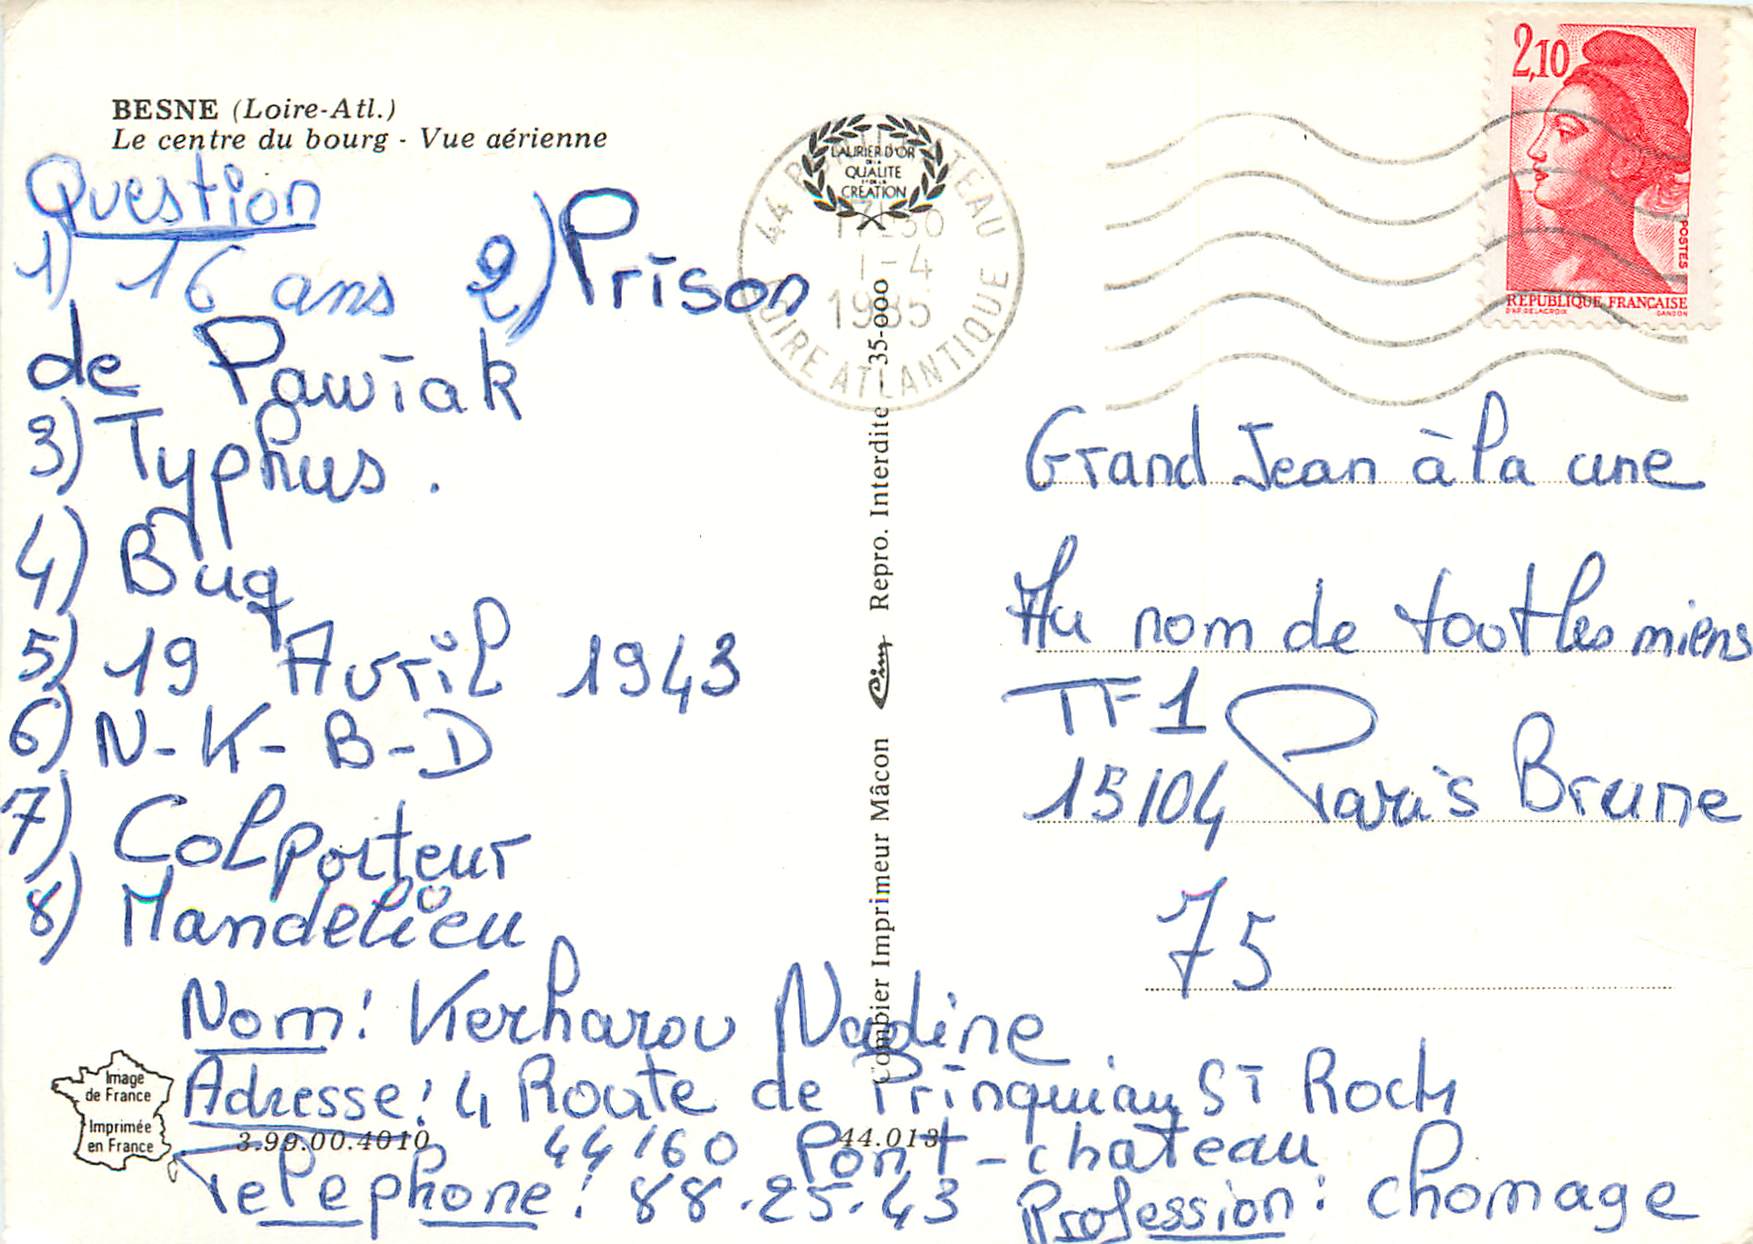 BESNE (Loire-Atl.)
Le centre du bourg - Vue aérienne
Question
1) 16 ans 2) Prison
de Pawiak
3) Typhus.
4) Bug
5) 19 Avril 1943
6) N-K-B-D
7) Colporteur
8) Mandelieu
Nom: Kerharou Nadine
Adresse: 4 Route de Prinquiau St Roch
44160 Pont-chateau
Telephone: 88.25.43 Profession: chomage
Image
de France
Imprimée
en France
3.99.00.4010
44.013
Combier Imprimeur Mâcon Cim Repro. Interdite - 35-000
LAURIER D'OR
DE LA
QUALITE
ET DE LA
CREATION
44 TEAU
1-4
1985
LOIRE ATLANTIQUE
2,10
POSTES
REPUBLIQUE FRANÇAISE
D'AP. DELACROIX GANDON
Grand Jean à la une
Au nom de toot les miens
TF1
15104 Paris Brune
75